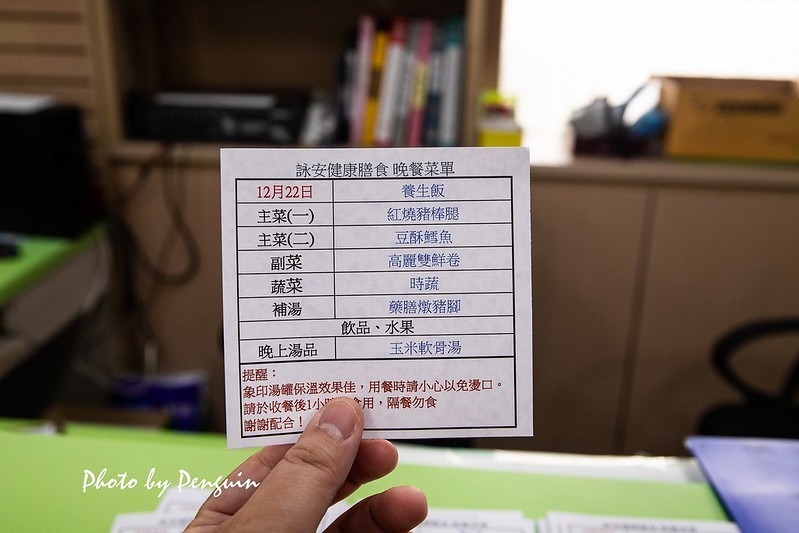 詠安健康膳食 晚餐菜單
12月22日 養生飯
主菜(一) 紅燒豬棒腿
主菜(二) 豆酥鱈魚
副菜 高麗雙鮮卷
蔬菜 時蔬
補湯 藥膳燉豬腳
飲品、水果
晚上湯品 玉米軟骨湯
提醒：
象印湯罐保溫效果佳，用餐時請小心以免燙口。
請於收餐後1小 食用，隔餐勿食
謝謝配合！
Photo by Penguin